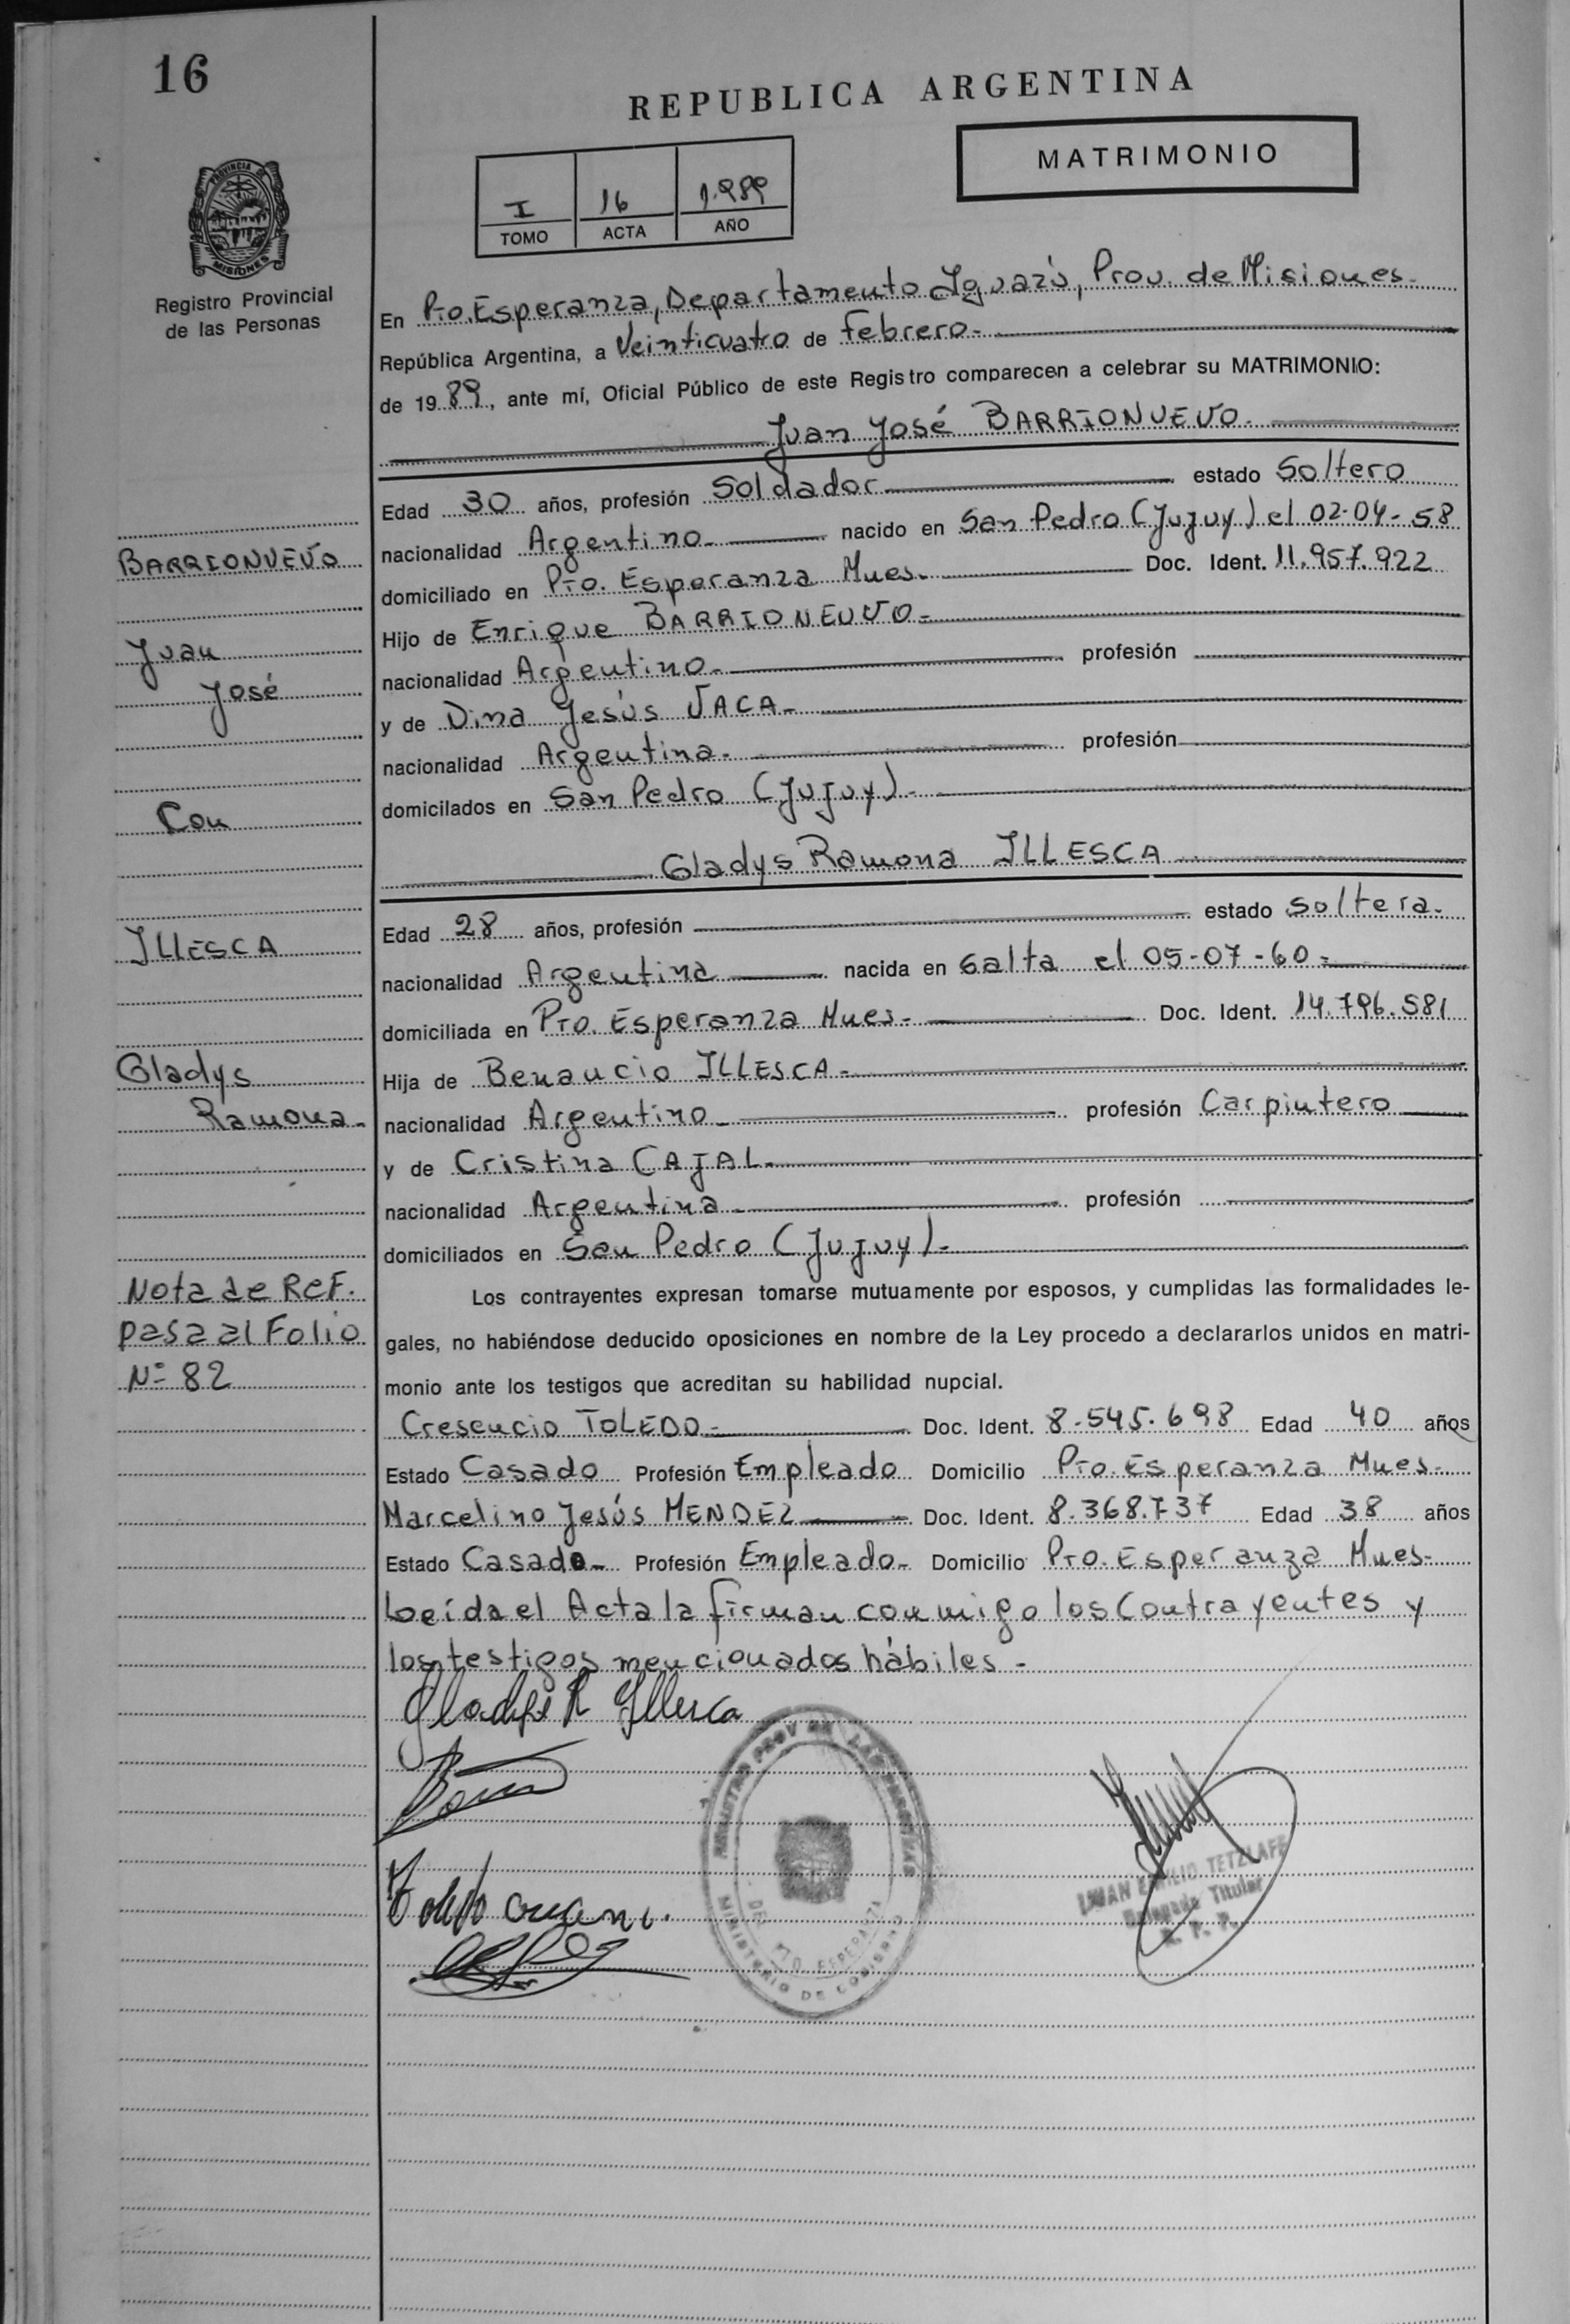 16
REPUBLICA ARGENTINA
MATRIMONIO
I 16 1.989
TOMO ACTA AÑO
PROVINCIA DE
MISIONES
Registro Provincial
de las Personas
En Pto. Esperanza, Departamento Iguazú, Prov. de Misiones.
República Argentina, a Veinticuatro de Febrero.-
de 19 89, ante mí, Oficial Público de este Registro comparecen a celebrar su MATRIMONIO:
Juan José BARRIONUEVO.
Edad 30 años, profesión Soldador estado Soltero
nacionalidad Argentino nacido en San Pedro (Jujuy) el 02-04-58
domiciliado en Pto. Esperanza Mnes. Doc. Ident. 11.957.922
Hijo de Enrique BARRIONEUVO.-
nacionalidad Argentino. profesión
y de Dina Jesús VACA-
nacionalidad Argentina. profesión
domicilados en San Pedro (Jujuy).
Gladys Ramona ILLESCA
Edad 28 años, profesión estado Soltera.
nacionalidad Argentina nacida en Salta el 05-07-60.-
domiciliada en Pto. Esperanza Mnes.- Doc. Ident. 14.796.581
Hija de Benancio ILLESCA.-
nacionalidad Argentino profesión Carpintero
y de Cristina CAJAL.
nacionalidad Argentina profesión
domiciliados en San Pedro (Jujuy).-
Los contrayentes expresan tomarse mutuamente por esposos, y cumplidas las formalidades le-
gales, no habiéndose deducido oposiciones en nombre de la Ley procedo a declararlos unidos en matri-
monio ante los testigos que acreditan su habilidad nupcial.
Cresencio TOLEDO.- Doc. Ident. 8.545.698 Edad 40 años
Estado Casado Profesión Empleado Domicilio Pto. Esperanza Mnes.
Marcelino Jesús MENDEZ Doc. Ident. 8.368.737 Edad 38 años
Estado Casado- Profesión Empleado- Domicilio Pto. Esperanza Mnes.
Leída el Acta la firman conmigo los Contrayentes y
los testigos mencionados hábiles -
Gladys R Illesca
REGISTRO PROV DE LAS PERSONAS
MINISTERIO DE GOBIERNO
PTO ESPERANZA
JUAN EMILIO TETZLAFF
Delegado Titular
R. P. P.
BARRIONUEVO
Juan
José
Con
ILLESCA
Gladys
Ramona-
Nota de REF.
pasa al Folio
Nº 82